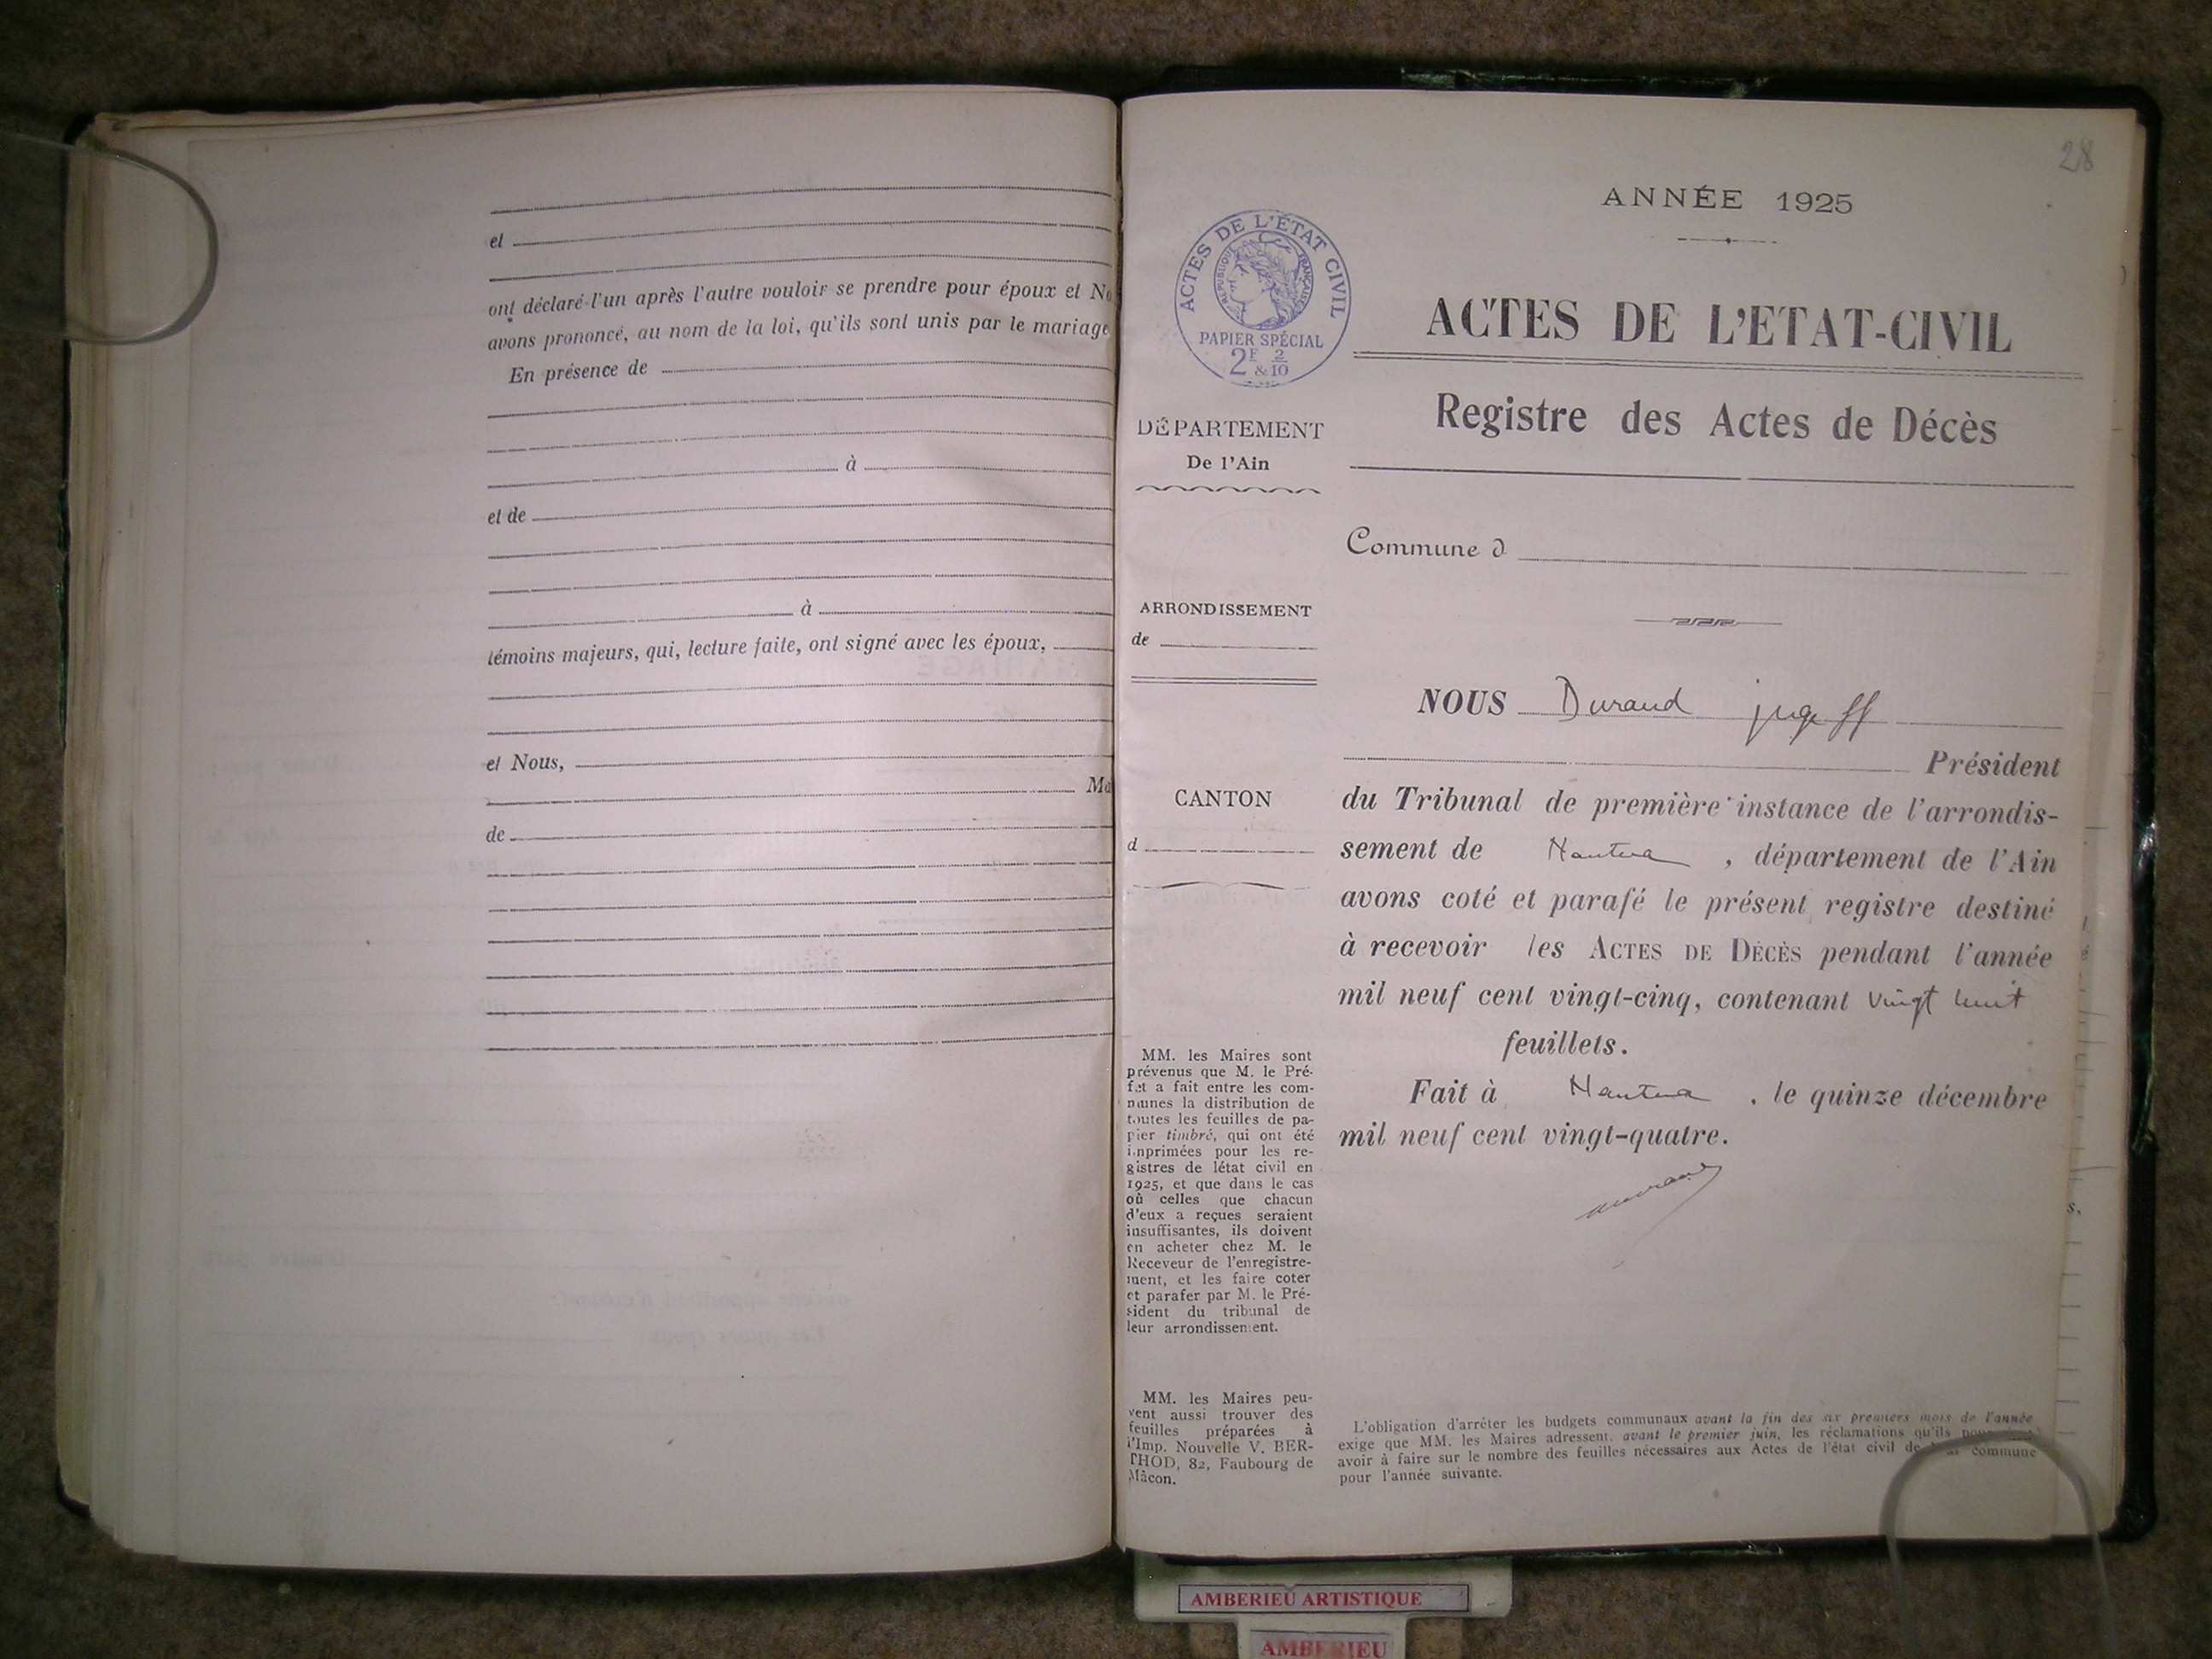 et
ont déclaré l'un après l'autre vouloir se prendre pour époux et No
avons prononcé, au nom de la loi, qu'ils sont unis par le mariage
En présence de
à
et de
à
témoins majeurs, qui, lecture faite, ont signé avec les époux,
et Nous,
Ma
de
28
ANNÉE 1925
ACTES DE L'ÉTAT CIVIL
RÉPUBLIQUE FRANÇAISE
PAPIER SPÉCIAL
2F & 2/10
ACTES DE L'ETAT-CIVIL
Registre des Actes de Décès
DÉPARTEMENT
De l'Ain
Commune d
ARRONDISSEMENT
de
CANTON
d
NOUS Durand juge ff
Président
du Tribunal de première instance de l'arrondis-
sement de Nantua, département de l'Ain
avons coté et parafé le présent registre destiné
à recevoir les ACTES DE DÉCÈS pendant l'année
mil neuf cent vingt-cinq, contenant vingt huit
feuillets.
Fait à Nantua, le quinze décembre
mil neuf cent vingt-quatre.
MM. les Maires sont
prévenus que M. le Pré-
fet a fait entre les com-
munes la distribution de
toutes les feuilles de pa-
pier timbré, qui ont été
imprimées pour les re-
gistres de létat civil en
1925, et que dans le cas
où celles que chacun
d'eux a reçues seraient
insuffisantes, ils doivent
en acheter chez M. le
Receveur de l'enregistre-
ment, et les faire coter
et parafer par M. le Pré-
sident du tribunal de
leur arrondissement.
MM. les Maires peu-
vent aussi trouver des
feuilles préparées à
l'Imp. Nouvelle V. BER-
THOD, 82, Faubourg de
Mâcon.
L'obligation d'arrêter les budgets communaux avant la fin des six premiers mois de l'année
exige que MM. les Maires adressent, avant le premier juin, les réclamations qu'ils
avoir à faire sur le nombre des feuilles nécessaires aux Actes de l'état civil de commune
pour l'année suivante.
AMBERIEU ARTISTIQUE
AMBERIEU